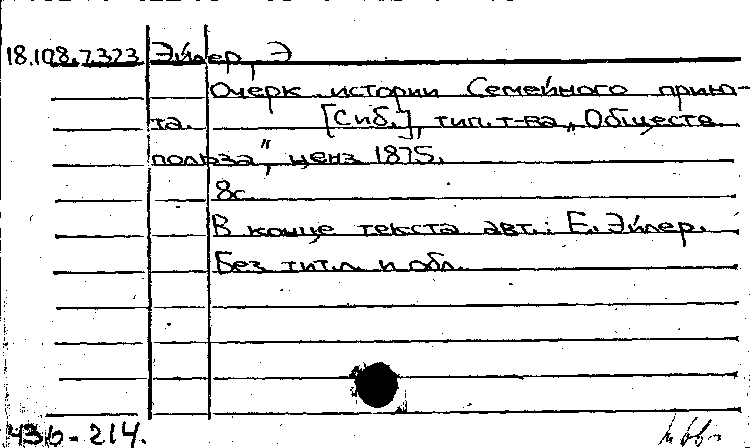 18.108.7.323 Эйлер, Э
Очерк истории Семейного прию-
та. [Спб.], тип. т-ва „Обществ.
польза", ценз 1875.
8с.
В конце текста авт.: Е. Эйлер.
Без тит.л. и обл.
43б-214.